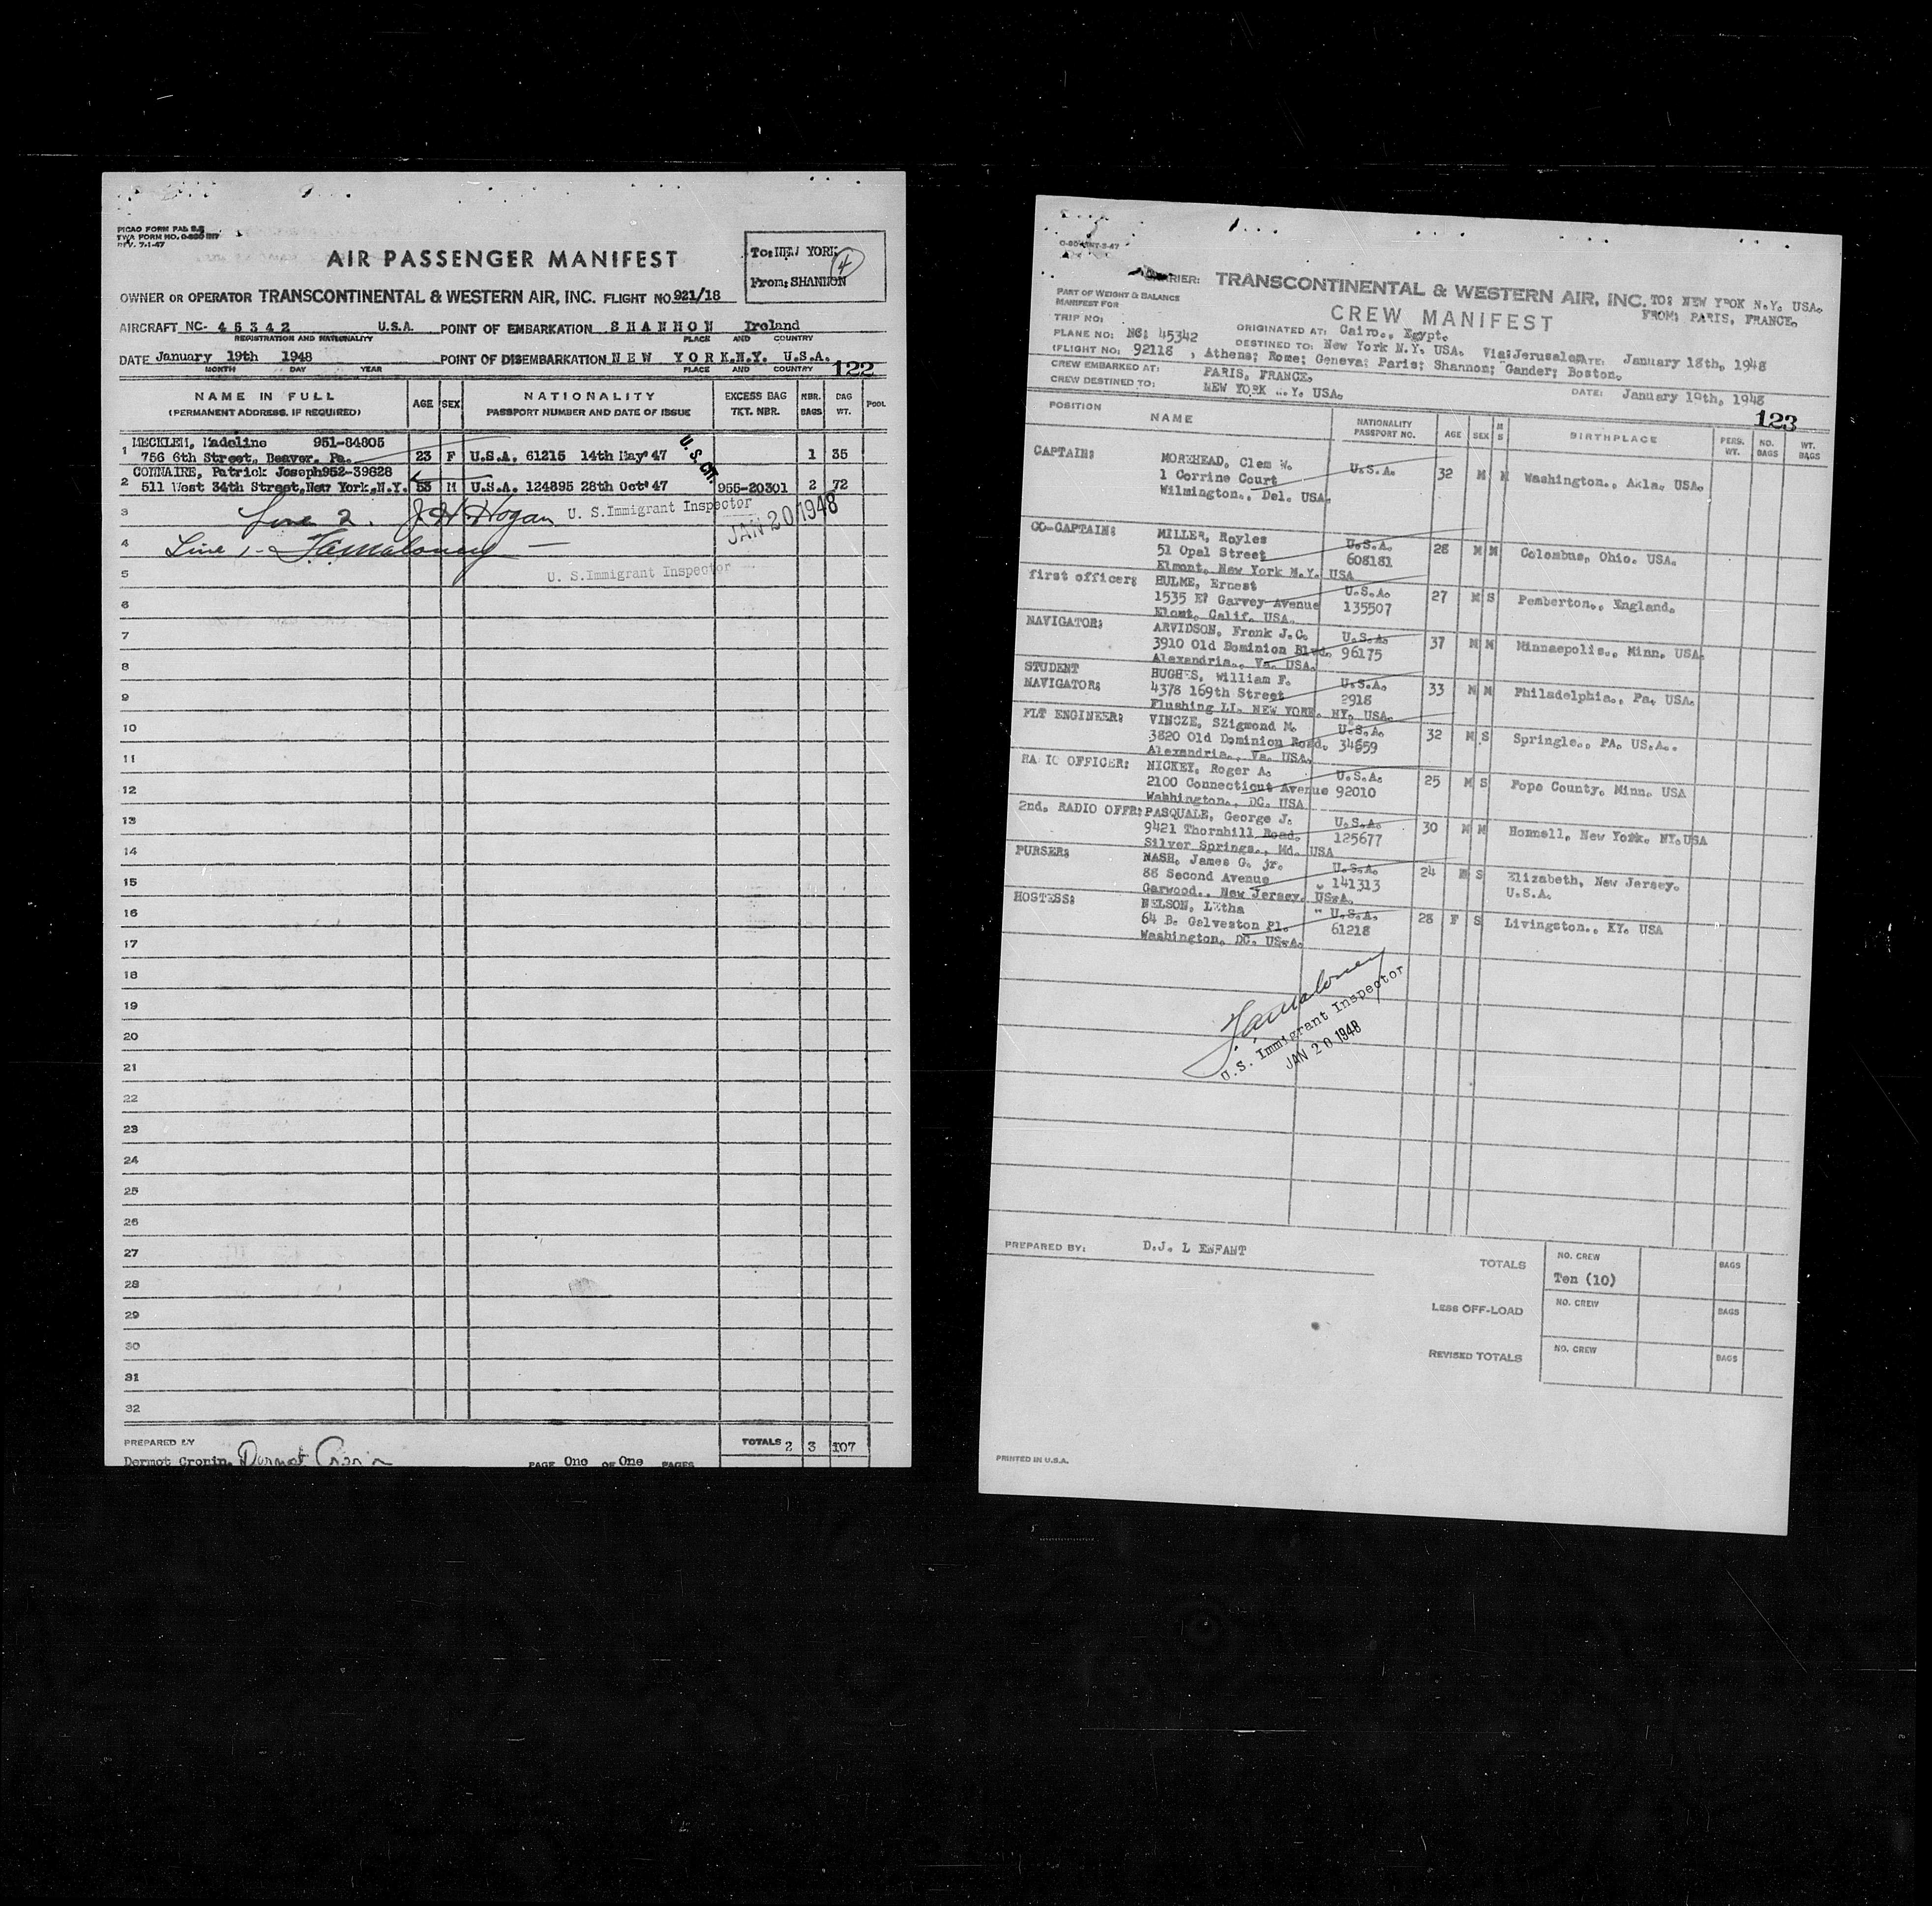 PICAO FORM PAL 2.2
TWA FORM NO. O-280 INT
REV. 7-1-47
AIR PASSENGER MANIFEST
To: NEW YORK
4
From: SHANNON
OWNER OR OPERATOR TRANSCONTINENTAL & WESTERN AIR, INC. FLIGHT NO 921/18
AIRCRAFT NC- 45342 U.S.A. POINT OF EMBARKATION SHANNON Ireland
REGISTRATION AND NATIONALITY PLACE AND COUNTRY
DATE January 19th 1948 POINT OF DISEMBARKATION NEW YORK.N.Y. U.S.A.
MONTH DAY YEAR PLACE AND COUNTRY
122
NAME IN FULL AGE SEX NATIONALITY EXCESS BAG NBR. BAG POOL
(PERMANENT ADDRESS, IF REQUIRED) PASSPORT NUMBER AND DATE OF ISSUE TKT. NBR. BAGS WT.
MECKLEM, Madeline 951-84805
1 756 6th Street, Beaver. Pa. 23 F U.S.A. 61215 14th May'47 U.S.CIT. 1 35
CONNAIRE, Patrick Joseph952-39828
2 511 West 34th Street,New York.N.Y. 53 M U.S.A. 124895 28th Oct'47 955-20301 2 72
3 Line 2. J.H. Hogan U. S.Immigrant Inspector
JAN 20 1948
4 Line 1 - F.A. Maloney
5 U. S.Immigrant Inspector
6
7
8
9
10
11
12
13
14
15
16
17
18
19
20
21
22
23
24
25
26
27
28
29
30
31
32
PREPARED BY TOTALS 2 3 107
Dermot Cronin. Dermot Cronin PAGE One OF One PAGES
CARRIER: TRANSCONTINENTAL & WESTERN AIR, INC. TO: NEW YROK N.Y. USA.
PART OF WEIGHT & BALANCE
MANIFEST FOR CREW MANIFEST FROM: PARIS, FRANCE.
TRIP NO:
PLANE NO: NC: 45342 ORIGINATED AT: Cairo., Egypt.
DESTINED TO: New York N.Y. USA. Via:Jerusalem DATE: January 18th, 1948
(FLIGHT NO: 92118 , Athens; Rome; Geneva; Paris; Shannon; Gander; Boston.
CREW EMBARKED AT: PARIS, FRANCE.
CREW DESTINED TO: NEW YORK N.Y. USA. DATE: January 19th, 1948
123
POSITION NAME NATIONALITY PASSPORT NO. AGE SEX M S BIRTHPLACE PERS. WT. NO. BAGS WT. BAGS
CAPTAIN: MOREHEAD, Clem W. U.S.A. 32 M M Washington., Akla. USA.
1 Corrine Court
Wilmington., Del. USA.
CO-CAPTAIN: MILLER, Royles U.S.A. 28 M M Colombus, Ohio. USA.
51 Opal Street 608181
Elmont, New York N.Y. USA
first officer: HULME, Ernest U.S.A. 27 M S Pemberton., England.
1535 E? Garvey Avenue 135507
Elomt, Calif. USA.
NAVIGATOR: ARVIDSON, Frank J.C. U.S.A. 37 M M Minnaepolis., Minn. USA.
3910 Old Dominion Blvd. 96175
Alexandria., Va. USA.
STUDENT HUGHES, William F. U.S.A. 33 M M Philadelphia., Pa. USA.
NAVIGATOR: 4378 169th Street 2918
Flushing LI. NEW YORK. NY. USA.
FLT ENGINEER: VINCZE, SZigmond M. U.S.A. 32 M S Springle., PA. US.A..
3820 Old Dominion Road. 34659
Alexandria., Va. USA.
RADIO OFFICER: NICKEY, Roger A. U.S.A. 25 M S Pope County. Minn. USA
2100 Connecticut Avenue 92010
Wahhington., DC. USA
2nd. RADIO OFFR: PASQUALE, George J. U.S.A. 30 M M Hornell, New York. NY.USA
9421 Thornhill Road. 125677
Silver Springs., Md. USA
PURSER: NASH, James G. jr. U.S.A. 24 M S Elizabeth, New Jersey.
88 Second Avenue 141313 U.S.A.
Garwood., New Jersey. US.A.
HOSTESS: NELSON, LEtha U.S.A. 28 F S Livingston., KY. USA
64 B. Galveston Pl. 61218
Washington, DC. US.A.
F.A. Maloney
U.S. Immigrant Inspector
JAN 20 1948
PREPARED BY: D.J. L ENFANT
TOTALS NO. CREW BAGS
Ten (10)
LESS OFF-LOAD NO. CREW BAGS
REVISED TOTALS NO. CREW BAGS
PRINTED IN U.S.A.